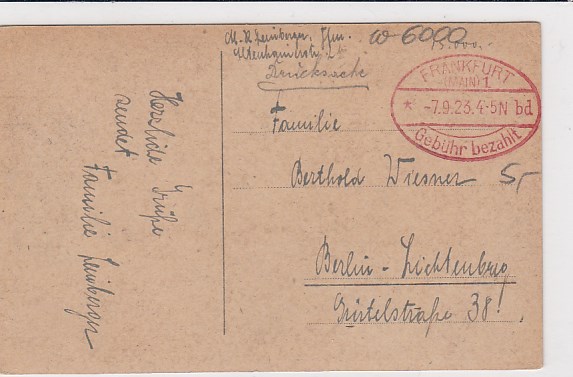 M. R. Leinberger, Ffm.
w 6000
15.000.-
Drucksache
FRANKFURT
(MAIN) 1.
* -7.9.23.4-5N bd
Gebühr bezahlt
Familie
Berthold Wiesner
5,-
Berlin - Lichtenberg
Gürtelstraße 38!
Herzliche Grüße
sendet
Familie Leinberger